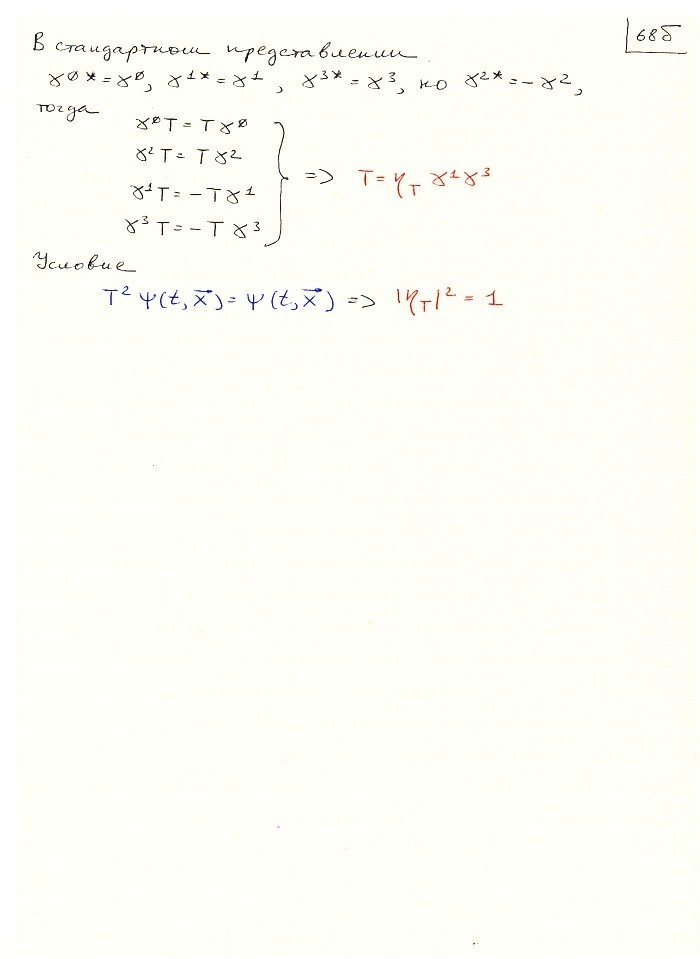 68б
В стандартном представлении
γ⁰* = γ⁰, γ¹* = γ¹, γ³* = γ³, но γ²* = −γ²,
тогда
γ⁰T = Tγ⁰
γ²T = Tγ²
γ¹T = −Tγ¹
γ³T = −Tγ³
=> T = η_T γ¹γ³
Условие
T² Ψ(t, x⃗) = Ψ(t, x⃗) => |η_T|² = 1